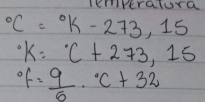 Temperatura
°C = °K - 273,15
°K = °C + 273,15
°f = 9/5 . °C + 32